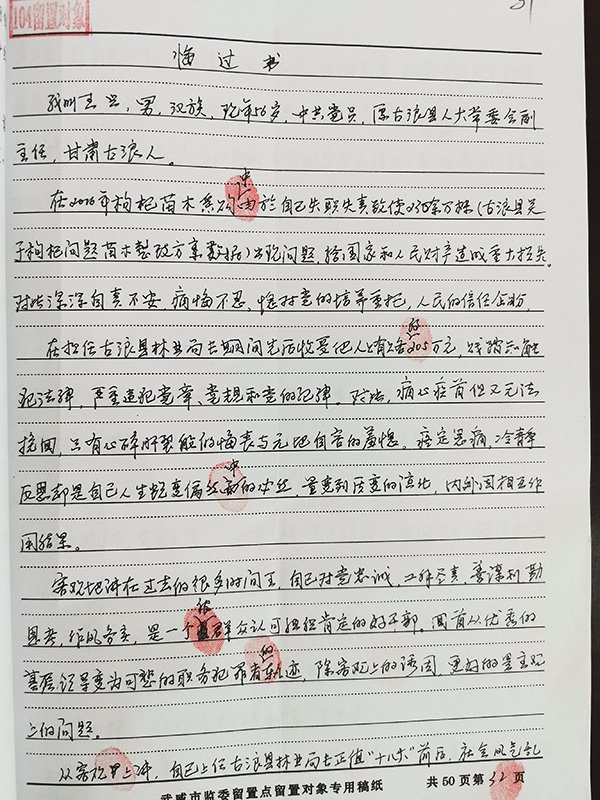 104留置对象
31
悔过书
我叫王兴，男，汉族，现年56岁，中共党员，原古浪县人大常委会副
主任，甘肃古浪人。
在2016年枸杞苗木采购中由於自己失职失责致使2300余万株（古浪县关
于枸杞问题苗木整改方案数据）出现问题，给国家和人民财产造成重大损失。
对此深深自责不安，痛悔不忍，愧对党的培养重托，人民的信任企盼，
在担任古浪县林业局长期间先后收受他人的万元，践踏和触
犯法律，严重违犯党章、党规和党的纪律。对此，痛心疾首但又无法
挽回，只有心碎肝裂般的悔丧与无地自容的羞愧。痛定思痛，冷静
反思却是自己人生蜕变中的必然，量变到质变的演化，内外因相互作
用结果。
客观地讲在过去的很多时间里，自己对党忠诚，工作尽责，善谋划勤
思考，作风务实，是一个被群众认可组织肯定的好干部。回首从优秀的
基层领导变为可憋的职务犯罪者的轨迹，除客观上的诱因，更好的是主观
上的问题。
从客观上讲，自己上任古浪县林业局长正值“十八大”前后，社会风气乱
武威市监委留置点留置对象专用稿纸
共50页第32页